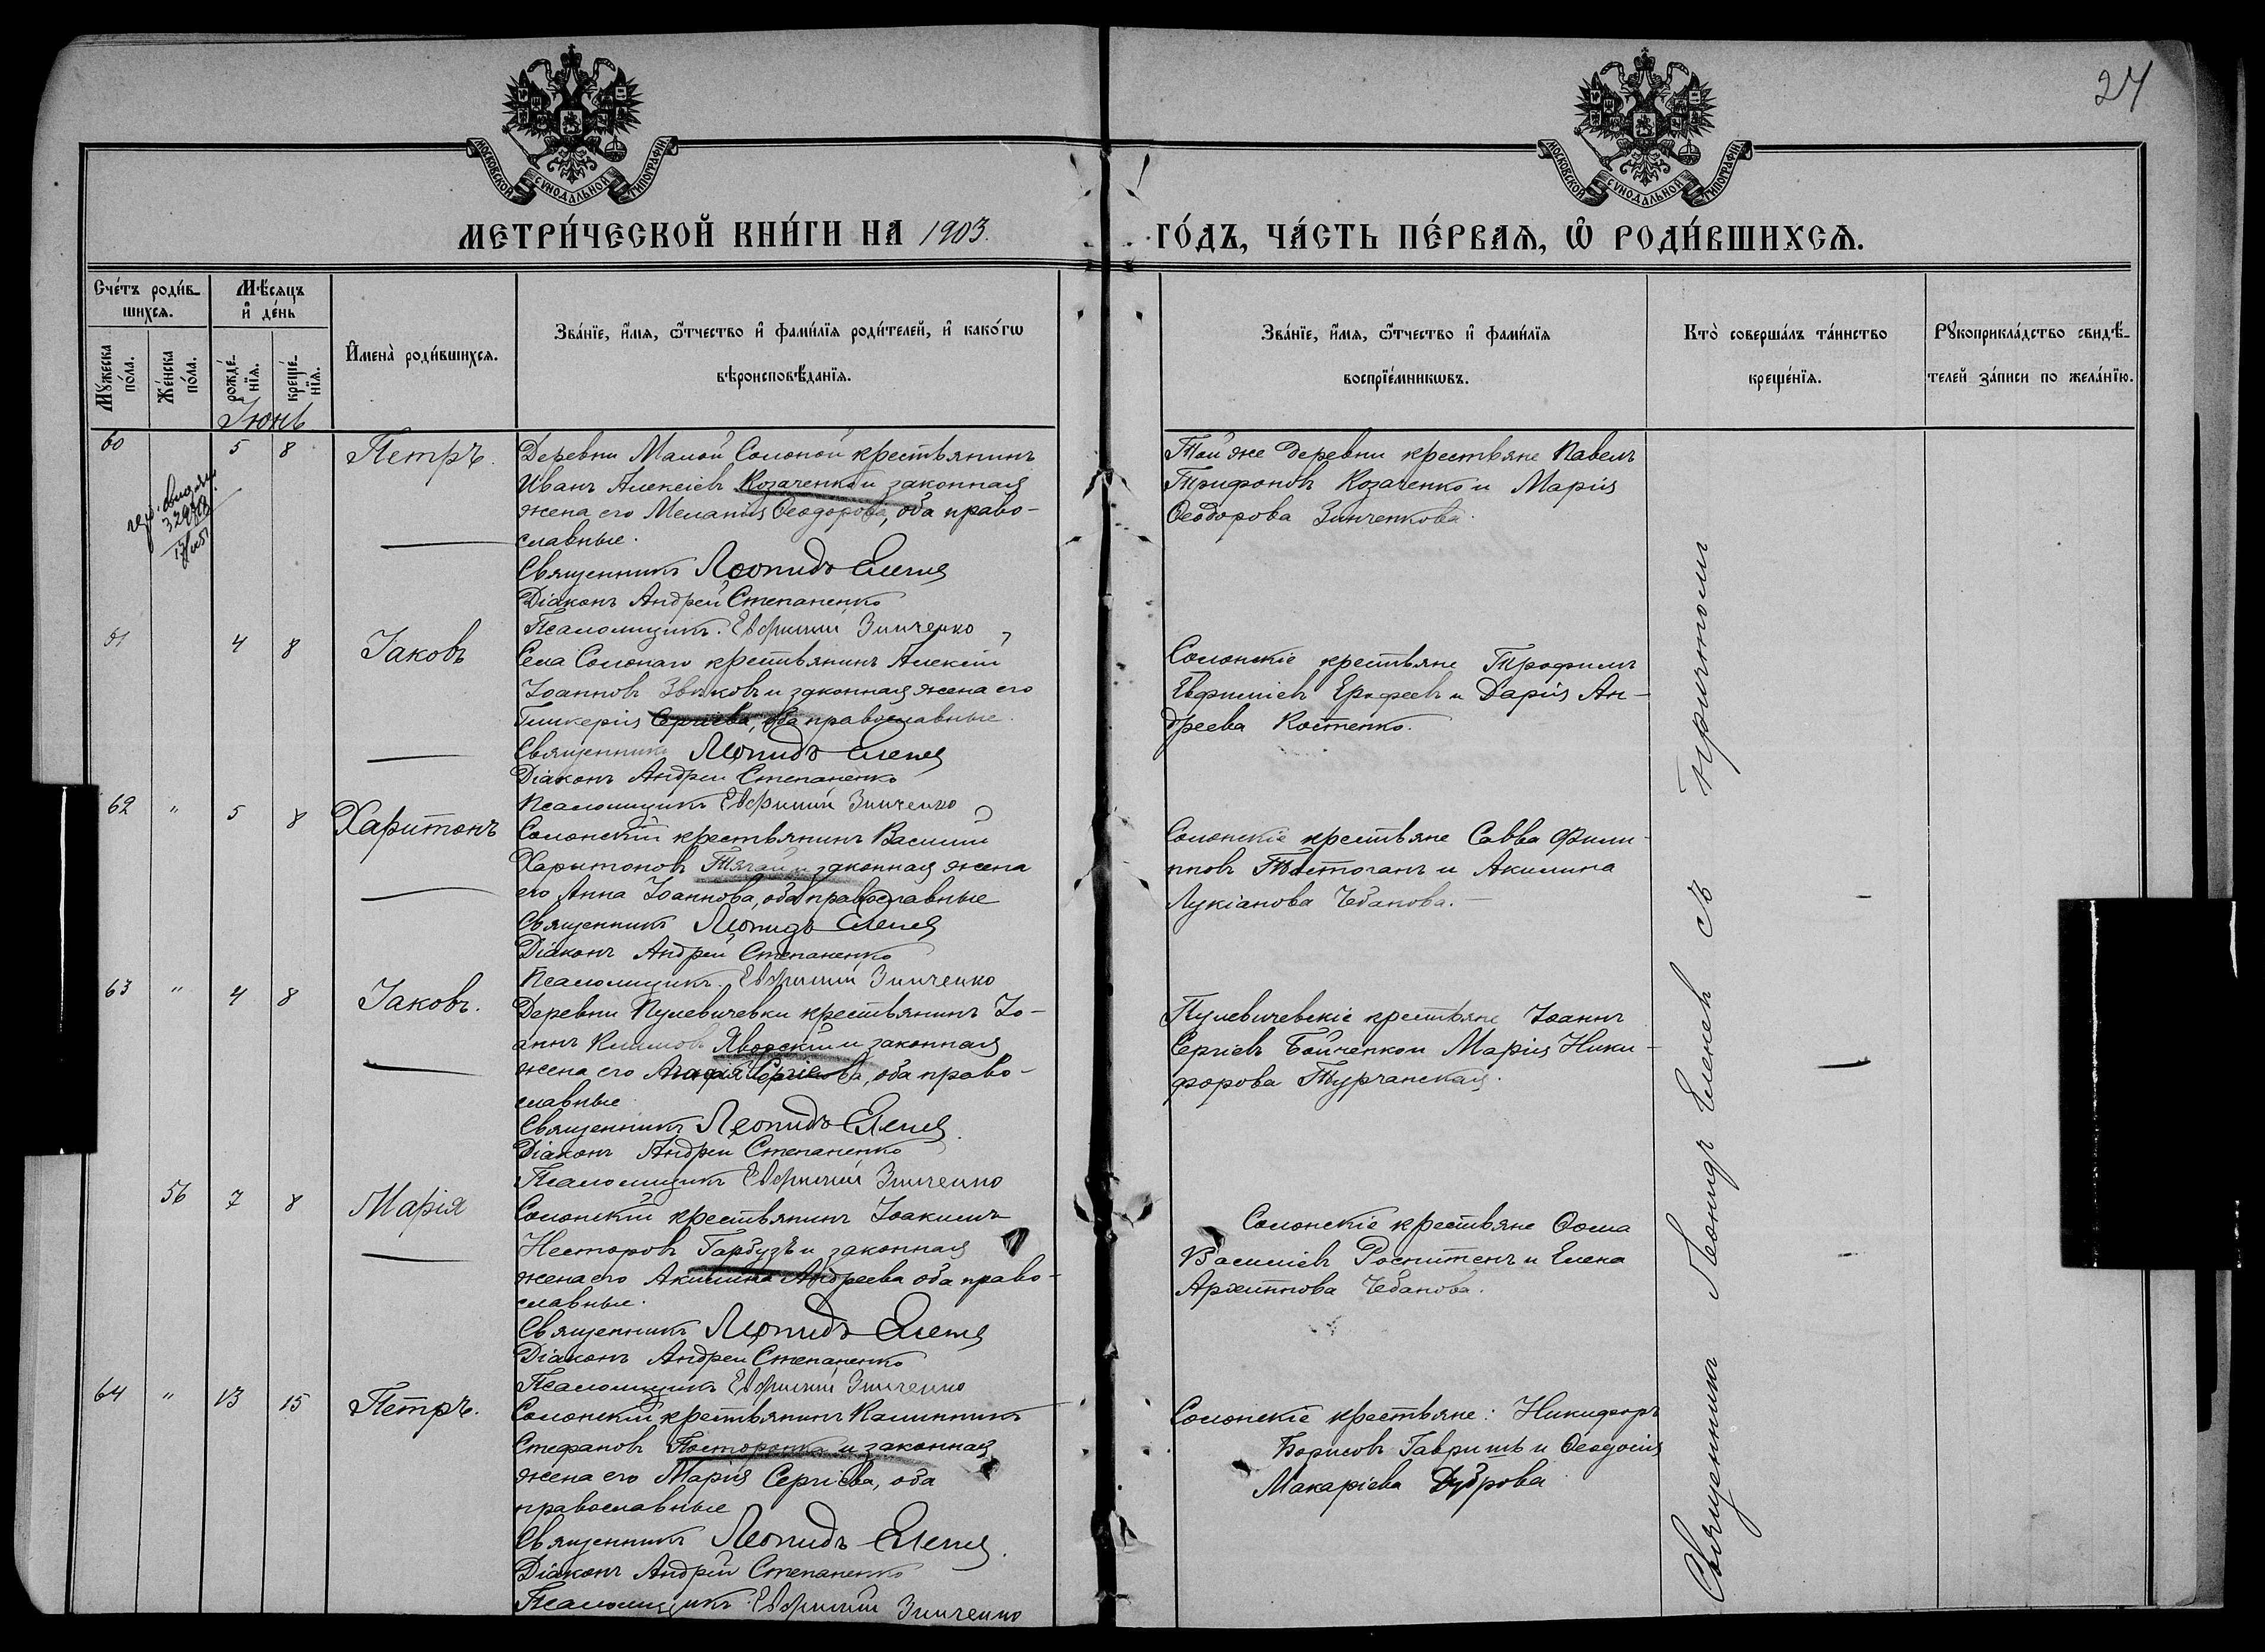 24
МОСКОВСКОЙ СѴНОДАЛЬНОЙ ТИПОГРАФІИ
МОСКОВСКОЙ СѴНОДАЛЬНОЙ ТИПОГРАФІИ
МЕТРИ́ЧЕСКОЙ КНИ́ГИ НА 1903.
ГО́ДЪ, ЧА́СТЬ ПЕ́РВАѦ, Ѽ РОДИ́ВШИХСѦ.
Сче́тъ роди́в-
шихсѧ.
Мꙋ́жеска по́ла.
Же́нска по́ла.
Мѣ́сѧцъ
и҆ де́нь
рожде́-
нїѧ.
креще́-
нїѧ.
И҆мена̀ роди́вшихсѧ.
Зва́нїе, и҆́мѧ, ѻ҆́тчество и҆ фамѝлїѧ роди́телей, и҆ како́гѡ
вѣроисповѣ́данїѧ.
Зва́нїе, и҆́мѧ, ѻ҆́тчество и҆ фами́лїѧ
воспрїе́мникѡвъ.
Кто̀ соверша́лъ та́инство
креще́нїѧ.
Рꙋкоприкла́дство свидѣ́-
телей за́писи по жела́нїю.
Іюнь
60
5 8
Петръ.
Деревни Малой Солоной крестьянинъ
Иванъ Алексіевъ Козаченко и законная
жена его Меланія Ѳеодорова, оба право-
славные.
Священникъ Леонидъ Еленев
Діаконъ Андрей Степаненко
Псаломщикъ Евфимій Зинченко
Той же деревни крестьяне Павелъ
Трифоновъ Козаченко и Марія
Ѳеодорова Зинченкова.
61
4 8
Іаковъ
Села Солонаго крестьянинъ Алексій
Іоанновъ Звяковъ и законная жена его
Гликерія Сергіева, оба православные.
Священникъ Леонидъ Еленев
Діаконъ Андрей Степаненко
Псаломщикъ Евфимій Зинченко
Солонскіе крестьяне Трофимъ
Евфиміевъ Ерофеевъ и Дарія Ан-
дреева Костенко.
62 " 5 8
Харитонъ
Солонскій крестьянинъ Василій
Харитоновъ Тягай и законная жена
его Анна Іоаннова, оба православные
Священникъ Леонидъ Еленев
Діаконъ Андрей Степаненко
Псаломщикъ Евфимій Зинченко
Солонскіе крестьяне Савва Фили-
пповъ Толстоганъ и Акилина
Лукіанова Чебанова.
63 " 4 8
Іаковъ.
Деревни Пулевичевки крестьянинъ Іо-
аннъ Климовъ Яворскій и законная
жена его Агафія Сергіева, оба право-
славные.
Священникъ Леонидъ Еленев
Діаконъ Андрей Степаненко
Псаломщикъ Евфимій Зинченко
Пулевичевскіе крестьяне Іоаннъ
Сергіевъ Бойченко и Марія Ники-
форова Турчанская.
56 7 8
Марія
Солонскій крестьянинъ Іоакимъ
Несторовъ Гарбузъ и законная
жена его Акилина Андреева оба право-
славные.
Священникъ Леонидъ Еленев
Діаконъ Андрей Степаненко
Псаломщикъ Евфимій Зинченко
Солонскіе крестьяне Ѳома
Василіевъ Роспитенъ и Елена
Архиппова Чебанова.
64 " 13 15
Петръ.
Солонскій крестьянинъ Каллиникъ
Стефановъ Посторонка и законная
жена его Марія Сергіева, оба
православные
Священникъ Леонидъ Еленев.
Діаконъ Андрей Степаненко
Псаломщикъ Евфимій Зинченко
Солонскіе крестьяне: Никифоръ
Борисовъ Гавришъ и Ѳеодосія
Макаріева Дуброва
Священникъ Леонидъ Еленевъ съ причтомъ